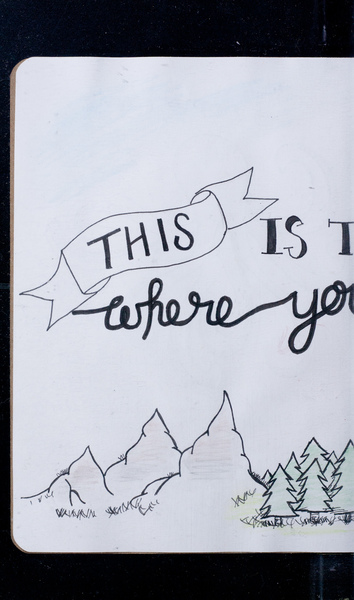 THIS IS T
where yo